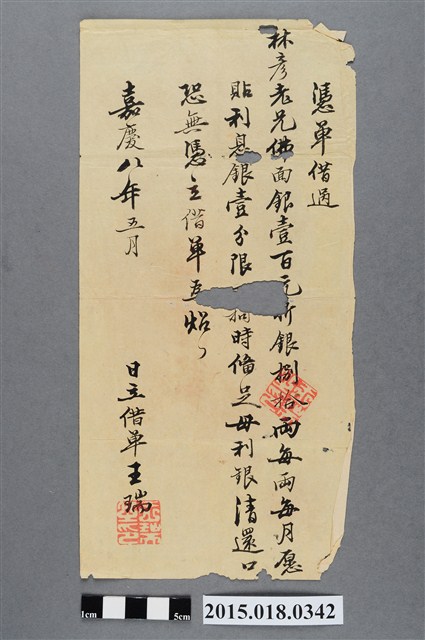 憑單借過
林彥老兄佛面銀壹百元折銀捌拾兩每兩每月愿
貼利息銀壹分限 時備足母利銀清還口
恐無憑立借單 炤
嘉慶八年五月
日立借單王瑞
1cm
5cm
2015.018.0342